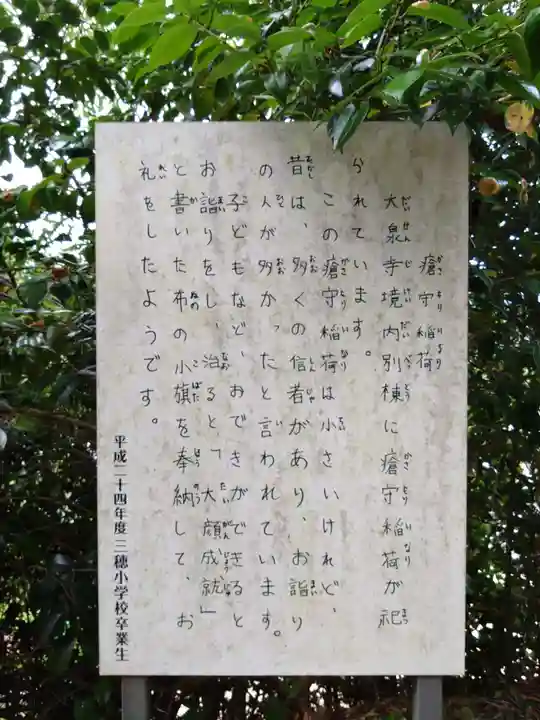 瘡守稲荷
大泉寺境内別棟に瘡守稲荷が祀
られています。
この瘡守稲荷は小さいけれど、
昔は、多くの信者があり、お詣り
の人が多かったと言われています。
子どもなど、おできができると
お詣りをし、治ると「大願成就」
と書いた布の小旗を奉納して、お
礼をしたようです。
平成二十四年度三穂小学校卒業生